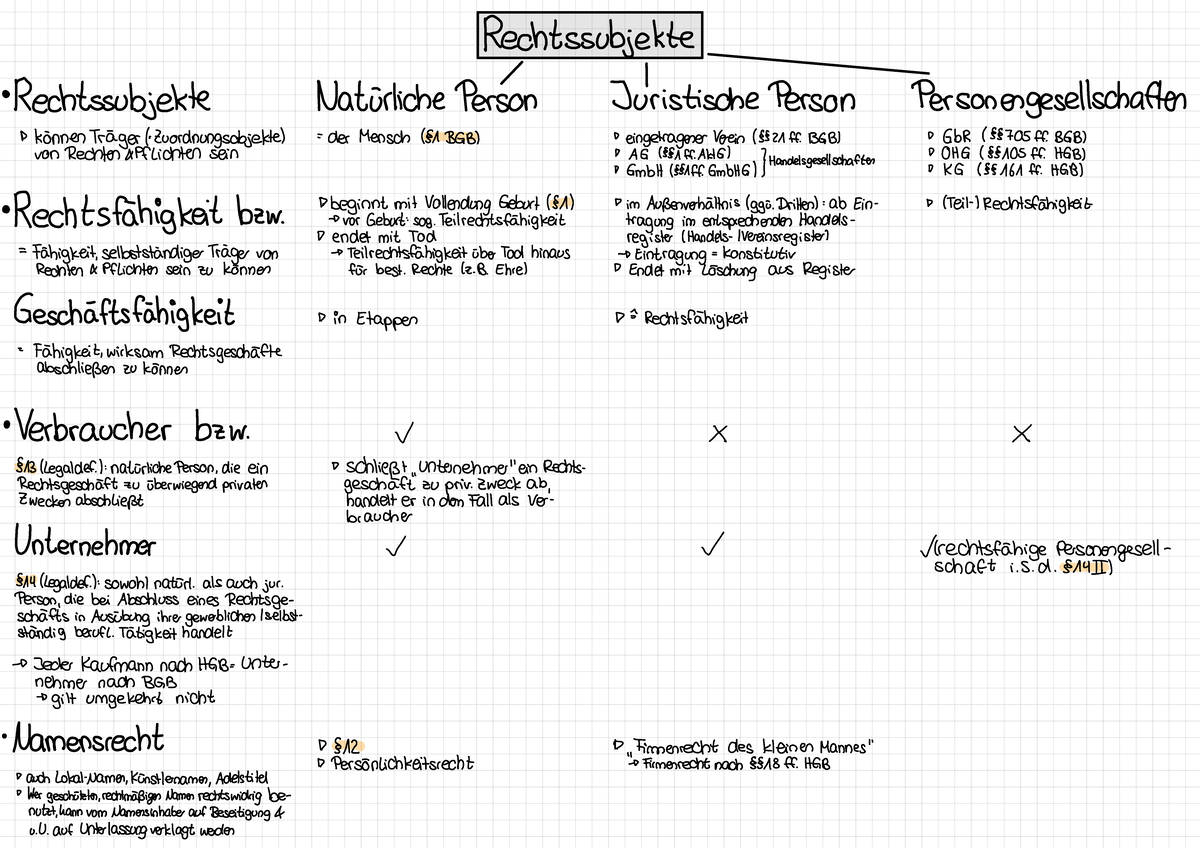 Rechtssubjekte
• Rechtssubjekte
▷ können Träger (: Zuordnungsobjekte)
von Rechten & Pflichten sein
Natürliche Person
= der Mensch (§1 BGB)
Juristische Person
▷ eingetragener Verein (§§21 ff. BGB)
▷ AG (§§1 ff. AktG)
▷ GmbH (§§1ff GmbHG)
Handelsgesellschaften
Personengesellschaften
▷ GbR (§§705 ff. BGB)
▷ OHG (§§105 ff. HGB)
▷ KG (§§161 ff. HGB)
• Rechtsfähigkeit bzw.
= Fähigkeit, selbstständiger Träger von
Rechten & Pflichten sein zu können
▷ beginnt mit Vollendung Geburt (§1)
→ vor Geburt: sog. Teilrechtsfähigkeit
▷ endet mit Tod
→ Teilrechtsfähigkeit über Tod hinaus
für best. Rechte (z.B. Ehre)
▷ im Außenverhältnis (ggü. Dritten): ab Ein-
tragung im entsprechenden Handels-
register (Handels-/Vereinsregister)
→ Eintragung = konstitutiv
▷ Endet mit Löschung aus Register
▷ (Teil-) Rechtsfähigkeit
Geschäftsfähigkeit
= Fähigkeit, wirksam Rechtsgeschäfte
abschließen zu können
▷ in Etappen
▷ ≙ Rechtsfähigkeit
• Verbraucher bzw.
§13 (Legaldef.): natürliche Person, die ein
Rechtsgeschäft zu überwiegend privaten
Zwecken abschließt
✓
▷ schließt „Unternehmer" ein Rechts-
geschäft zu priv. Zweck ab,
handelt er in dem Fall als Ver-
braucher
X
X
Unternehmer
§14 (Legaldef.): sowohl natürl. als auch jur.
Person, die bei Abschluss eines Rechtsge-
schäfts in Ausübung ihrer gewerblichen/selbst-
ständig berufl. Tätigkeit handelt
→ Jeder Kaufmann nach HGB = Unter-
nehmer nach BGB
→ gilt umgekehrt nicht
✓
✓
✓ (rechtsfähige Personengesell-
schaft i.S.d. §14 II)
• Namensrecht
▷ auch Lokal-Namen, Künstlernamen, Adelstitel
▷ Wer geschützten, rechtmäßigen Namen rechtswidrig be-
nutzt, kann vom Namensinhaber auf Beseitigung &
u.U. auf Unterlassung verklagt werden
▷ §12
▷ Persönlichkeitsrecht
▷ „Firmenrecht des kleinen Mannes"
→ Firmenrecht nach §§18 ff. HGB